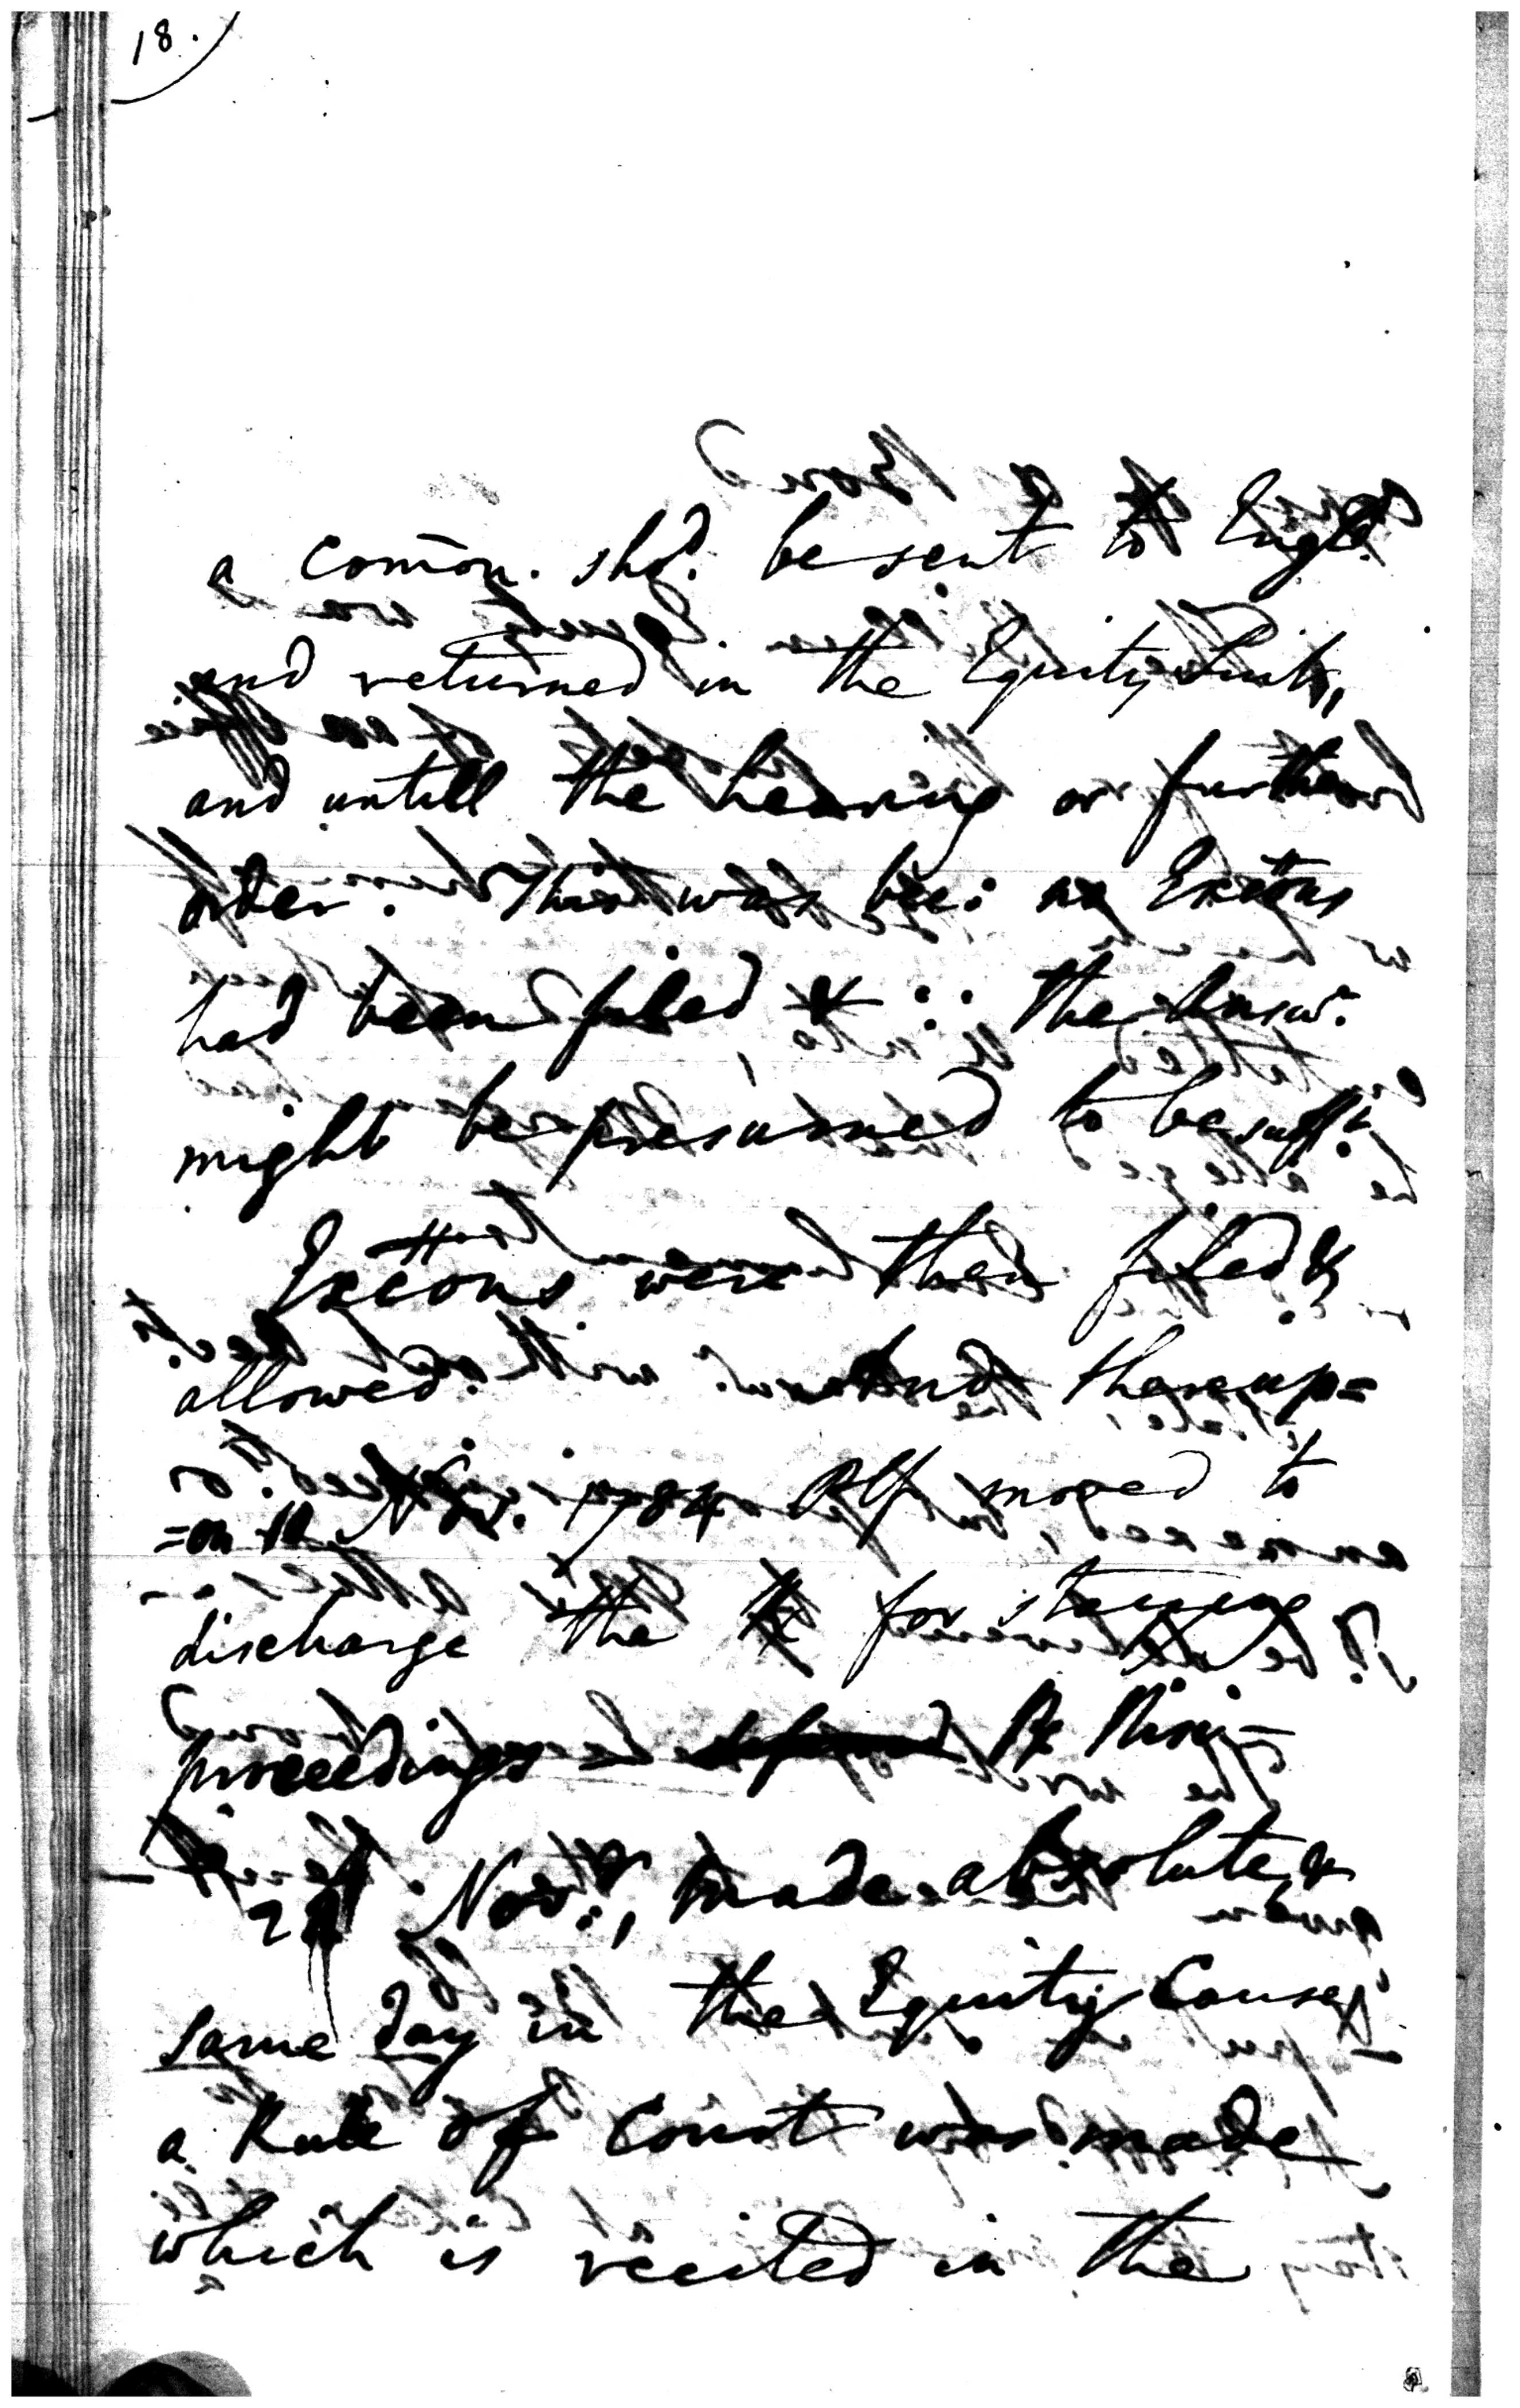 18.
a Comōn. shd. be sent to Engld.
and returned in the Equity Suit,
and untill the hearing or further
order. This was bec: no Exetons
had been filed & ∴ the Answr.
might be presumed to be sufft.
Exetons were then filed &
allowed. And thereup=
=on Novr. 1784 Plf moved to
discharge the R for staying
proceedings R Nisi —
Novr., made absolute, &
same day in the Equity Cause,
a Rule of Court was made
which is recited in the